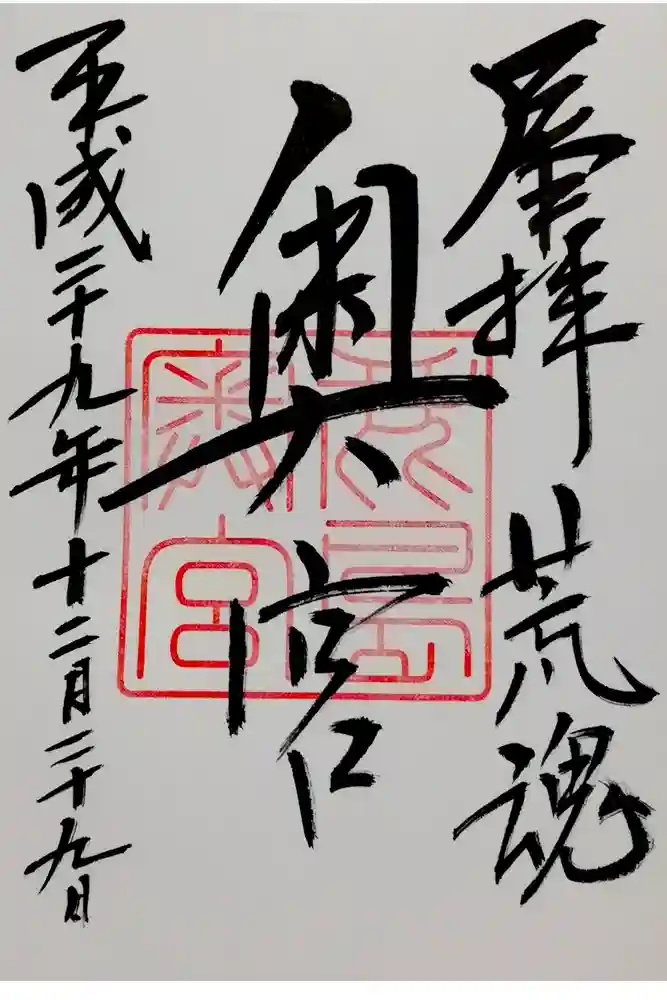 奉拝 荒魂
奥宮
平成二十九年十二月二十九日
鹿島
奥宮